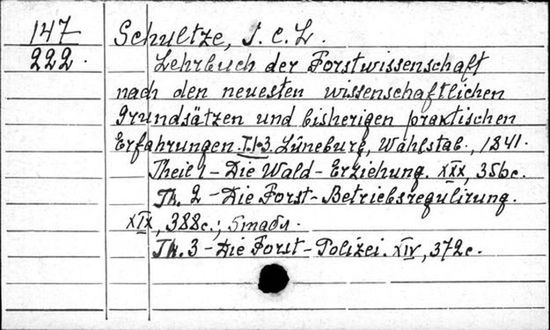 147
222.
Schultze, J. C. L.
Lehrbuch der Forstwissenschaft
nach den neuesten wissenschaftlichen
Grundsätzen und bisherigen praktischen
Erfahrungen. T.1-3. Lüneburg, Wahlstab, 1841.
Theil 1 – Die Wald-Erziehung. XXX, 356 c.
Th. 2 – Die Forst-Betriebsregulirung.
XIX, 388 c.; 5 табл.
Th. 3 – Die Forst-Polizei. XIV, 372 c.